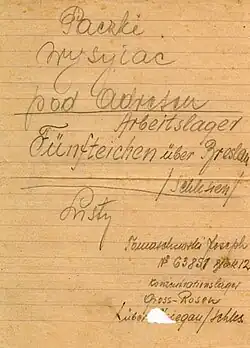 Paczki
wysyłac
pod Adresem
Arbeitslager
Fünfteichen über Breslau
/Schlesien/
Listy
Tomaschewski Joseph
№ 63851 Block 12
Konzentrationslager
Gross-Rosen
/Schles